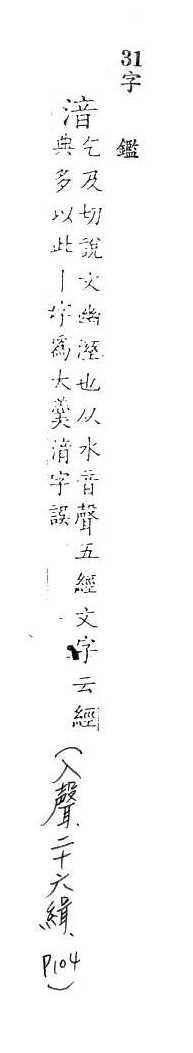 31字 鑑
湆
乞及切說文幽溼也从水音聲五經文字云經
典多以此丨字爲大羹湇字誤
(入聲、二十六緝、P104)